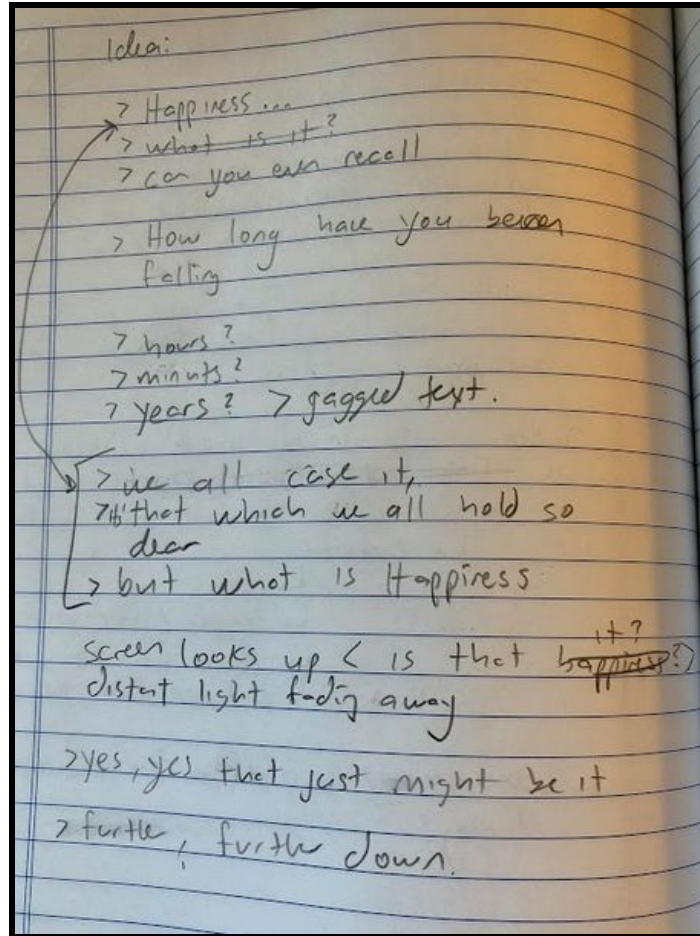 Idea:
> Happiness...
> what is it?
> can you even recall
> How long have you been
falling
> hours?
> minuts?
> years? > jagged text.
> we all case it,
> it's that which we all hold so
dear
> but what is Happiness
it?
screen looks up < is that happiness?)
distant light fading away
> yes, yes that just might be it
> furthe, furthe down.